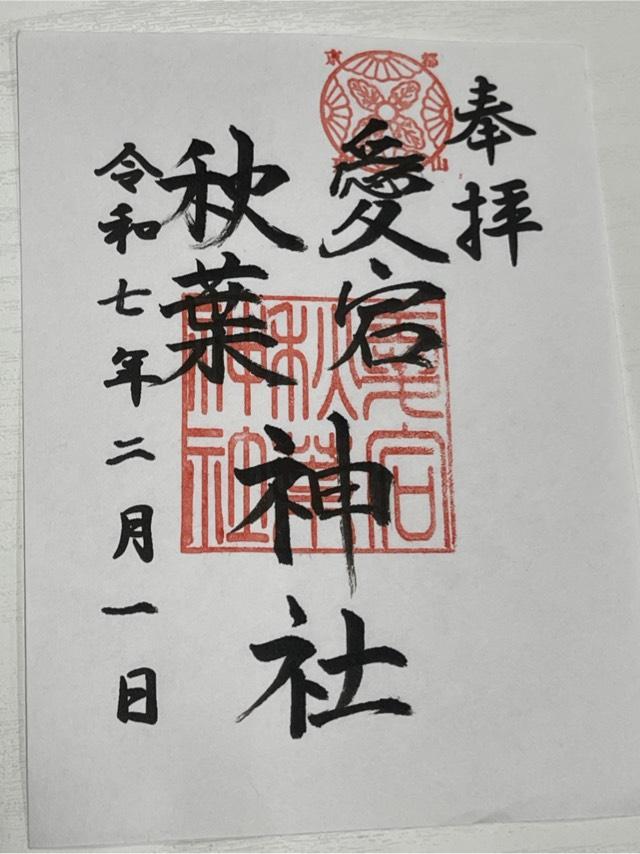 奉拝
京都
山
愛宕
秋葉
神社
愛宕
秋葉
神社
令和七年二月一日